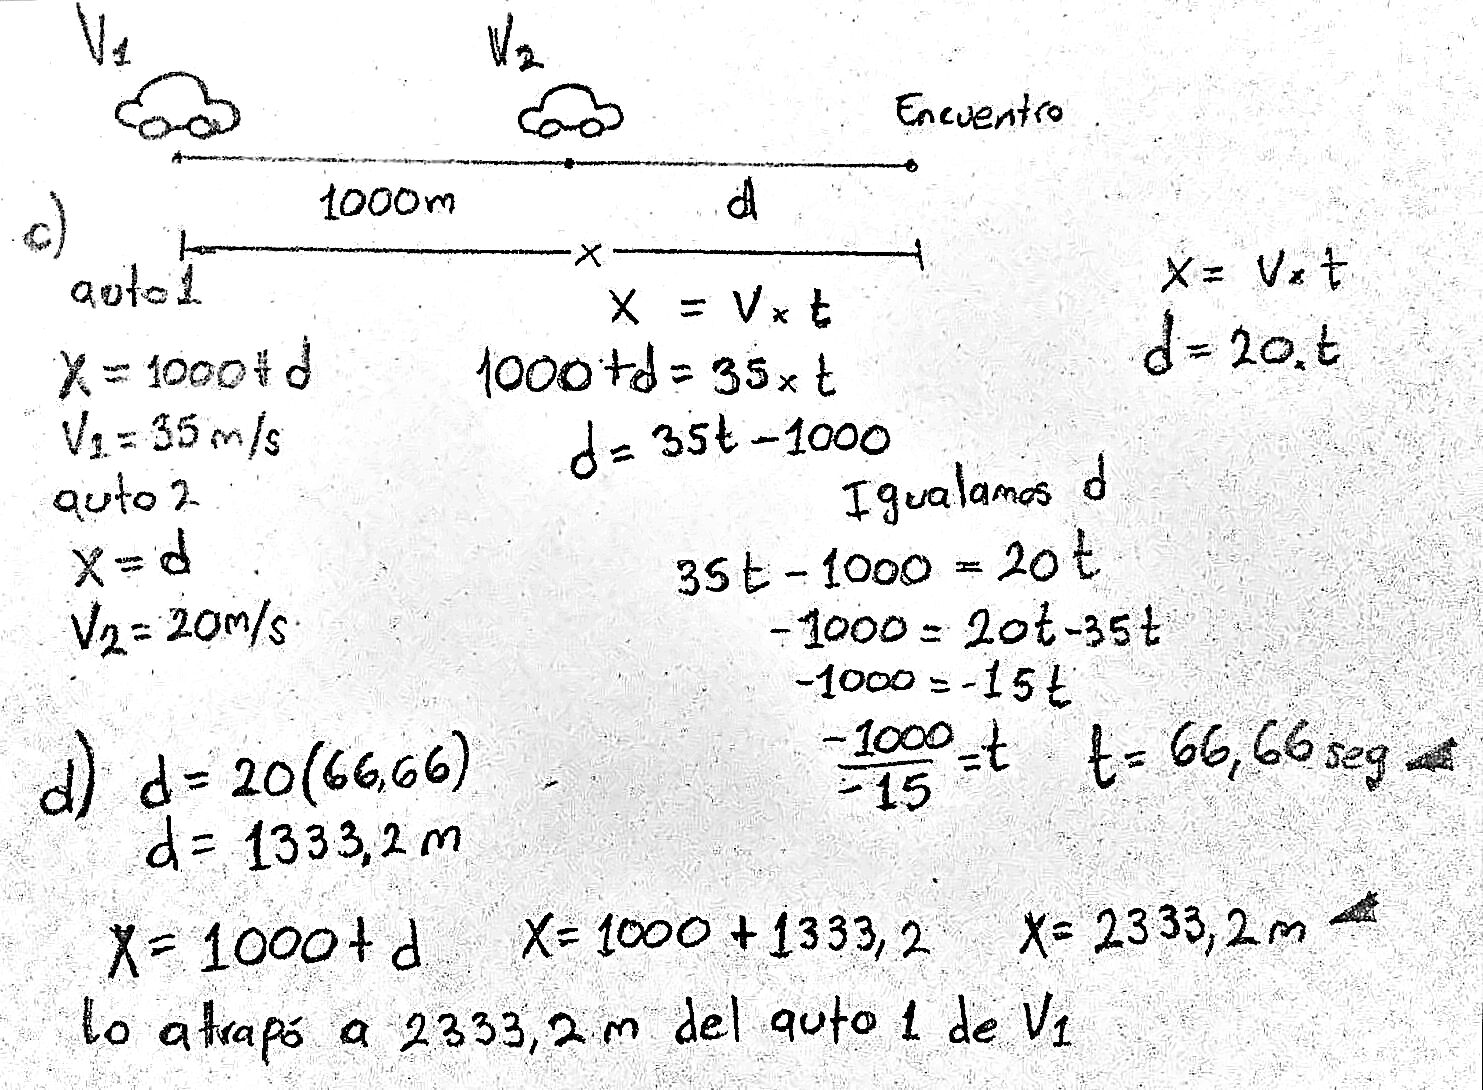 V1 V2
Encuentro
1000m d
c)
x
auto 1
X = V × t
X = V × t
X = 1000 + d
1000 + d = 35 × t
d = 20.t
V1 = 35 m/s
d = 35t - 1000
auto 2
Igualamos d
X = d
35t - 1000 = 20t
V2 = 20m/s
-1000 = 20t - 35t
-1000 = -15t
-1000/-15 = t t = 66,66 seg
d) d = 20(66,66)
d = 1333,2 m
X = 1000 + d X = 1000 + 1333,2 X = 2333,2 m
lo atrapó a 2333,2 m del auto 1 de V1